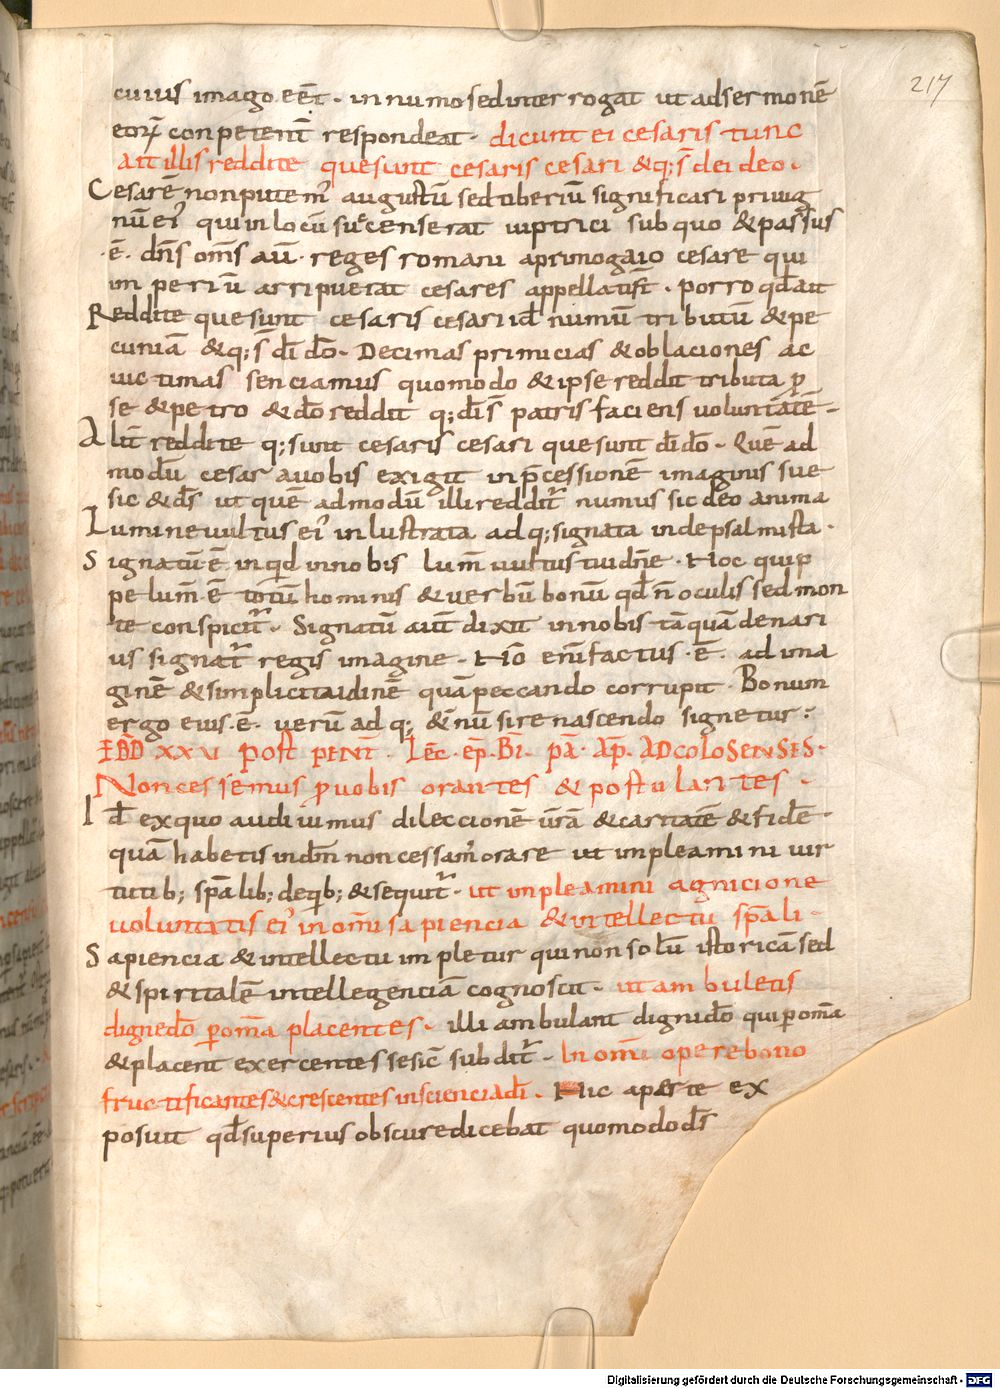 217
cuius imago eēt · in numo sed interrogat ut ad sermonē
eoꝝ conpetent̄ respondeat · dicunt ei cesaris tunc
ait illis reddite que sunt cesaris cesari & q; s̄ dei deo ·
Cesarē non putem̉ augustū sed tiberiū significari priuig
nū eỉ qui in locū succenserat uiptrici sub quo & passus
· ē · dn̄s om̄s aūt · reges romani a primo gaio cesare qui
imperiū arripuerat cesares appellati st̄ · porro qd̄ ait
Reddite que sunt cesaris cesari id̄ numū tributū & pe
cuniā & q; s̄ dī dō · Decimas primicias & oblaciones ac
uictimas senciamus quomodo & ipse reddit tributa ꝓ
se & petro & dō reddit q; dī s̄ patris faciens uoluntātē ·
Alit̄ reddite q; sunt cesaris cesari que sunt dī dō · Quē ad
modū cesar a uobis exigit inp̄cessionē imaginis sue
sic & ds̄ ut que admodū illi reddit̄ numus sic deo anima
Lumine uultus eỉ inlustrata adq; signata inde psalmista ·
Signatū ē in qid in nobis lum̄ uultus tui dn̄e · Hoc quip
pe lum̄ · ē totū hominis & uerbū bonū qd̄ n̄ oculis sed mon
te conspicit̄ · Signatū aut̄ dixit in nobis tāquā denari
us signat̄ regis imagine · Hō eni factus · ē · ad ima
ginē & similicitaidinē quā peccando corrupit · Bonum
ergo eius · ē · uerū adq; & n̄nū si renascendo signetur ·
EBD XXVI post PENT̄ · Lēc · ep̄ · Bī · pā · Āp̄ · AD COLOSENSES ·
Non cessemus ꝓ uobis orantes & postulantes ·
Id̄ ex quo audiuimus dileccionē ūrā & caritātē & fidē ·
quā habetis in dn̄m non cessam̉ orare ut inpleamini uir
tutib; sp̄alib; de qb; & sequit̄ · ut inpleamini agnicione
uoluntatis eỉ in omī sapiencia & intellectu sp̄ali ·
Sapiencia & intellectu impletur qui non solū istoricā sed
& spiritalē intellegenciā cognoscit · ut ambuletis
digne dō ꝑ om̄a placentes · illi ambulant digni dō qui ꝑ om̄a
& placent exercentes se sic̄ subdit̄ · In omī opere bono
fructificantes & crescentes in sciencia dī · Hic aperte ex
posuit qd̄ superius obscure dicebat quomodo ds̄
Digitalisierung gefördert durch die Deutsche Forschungsgemeinschaft - DFG